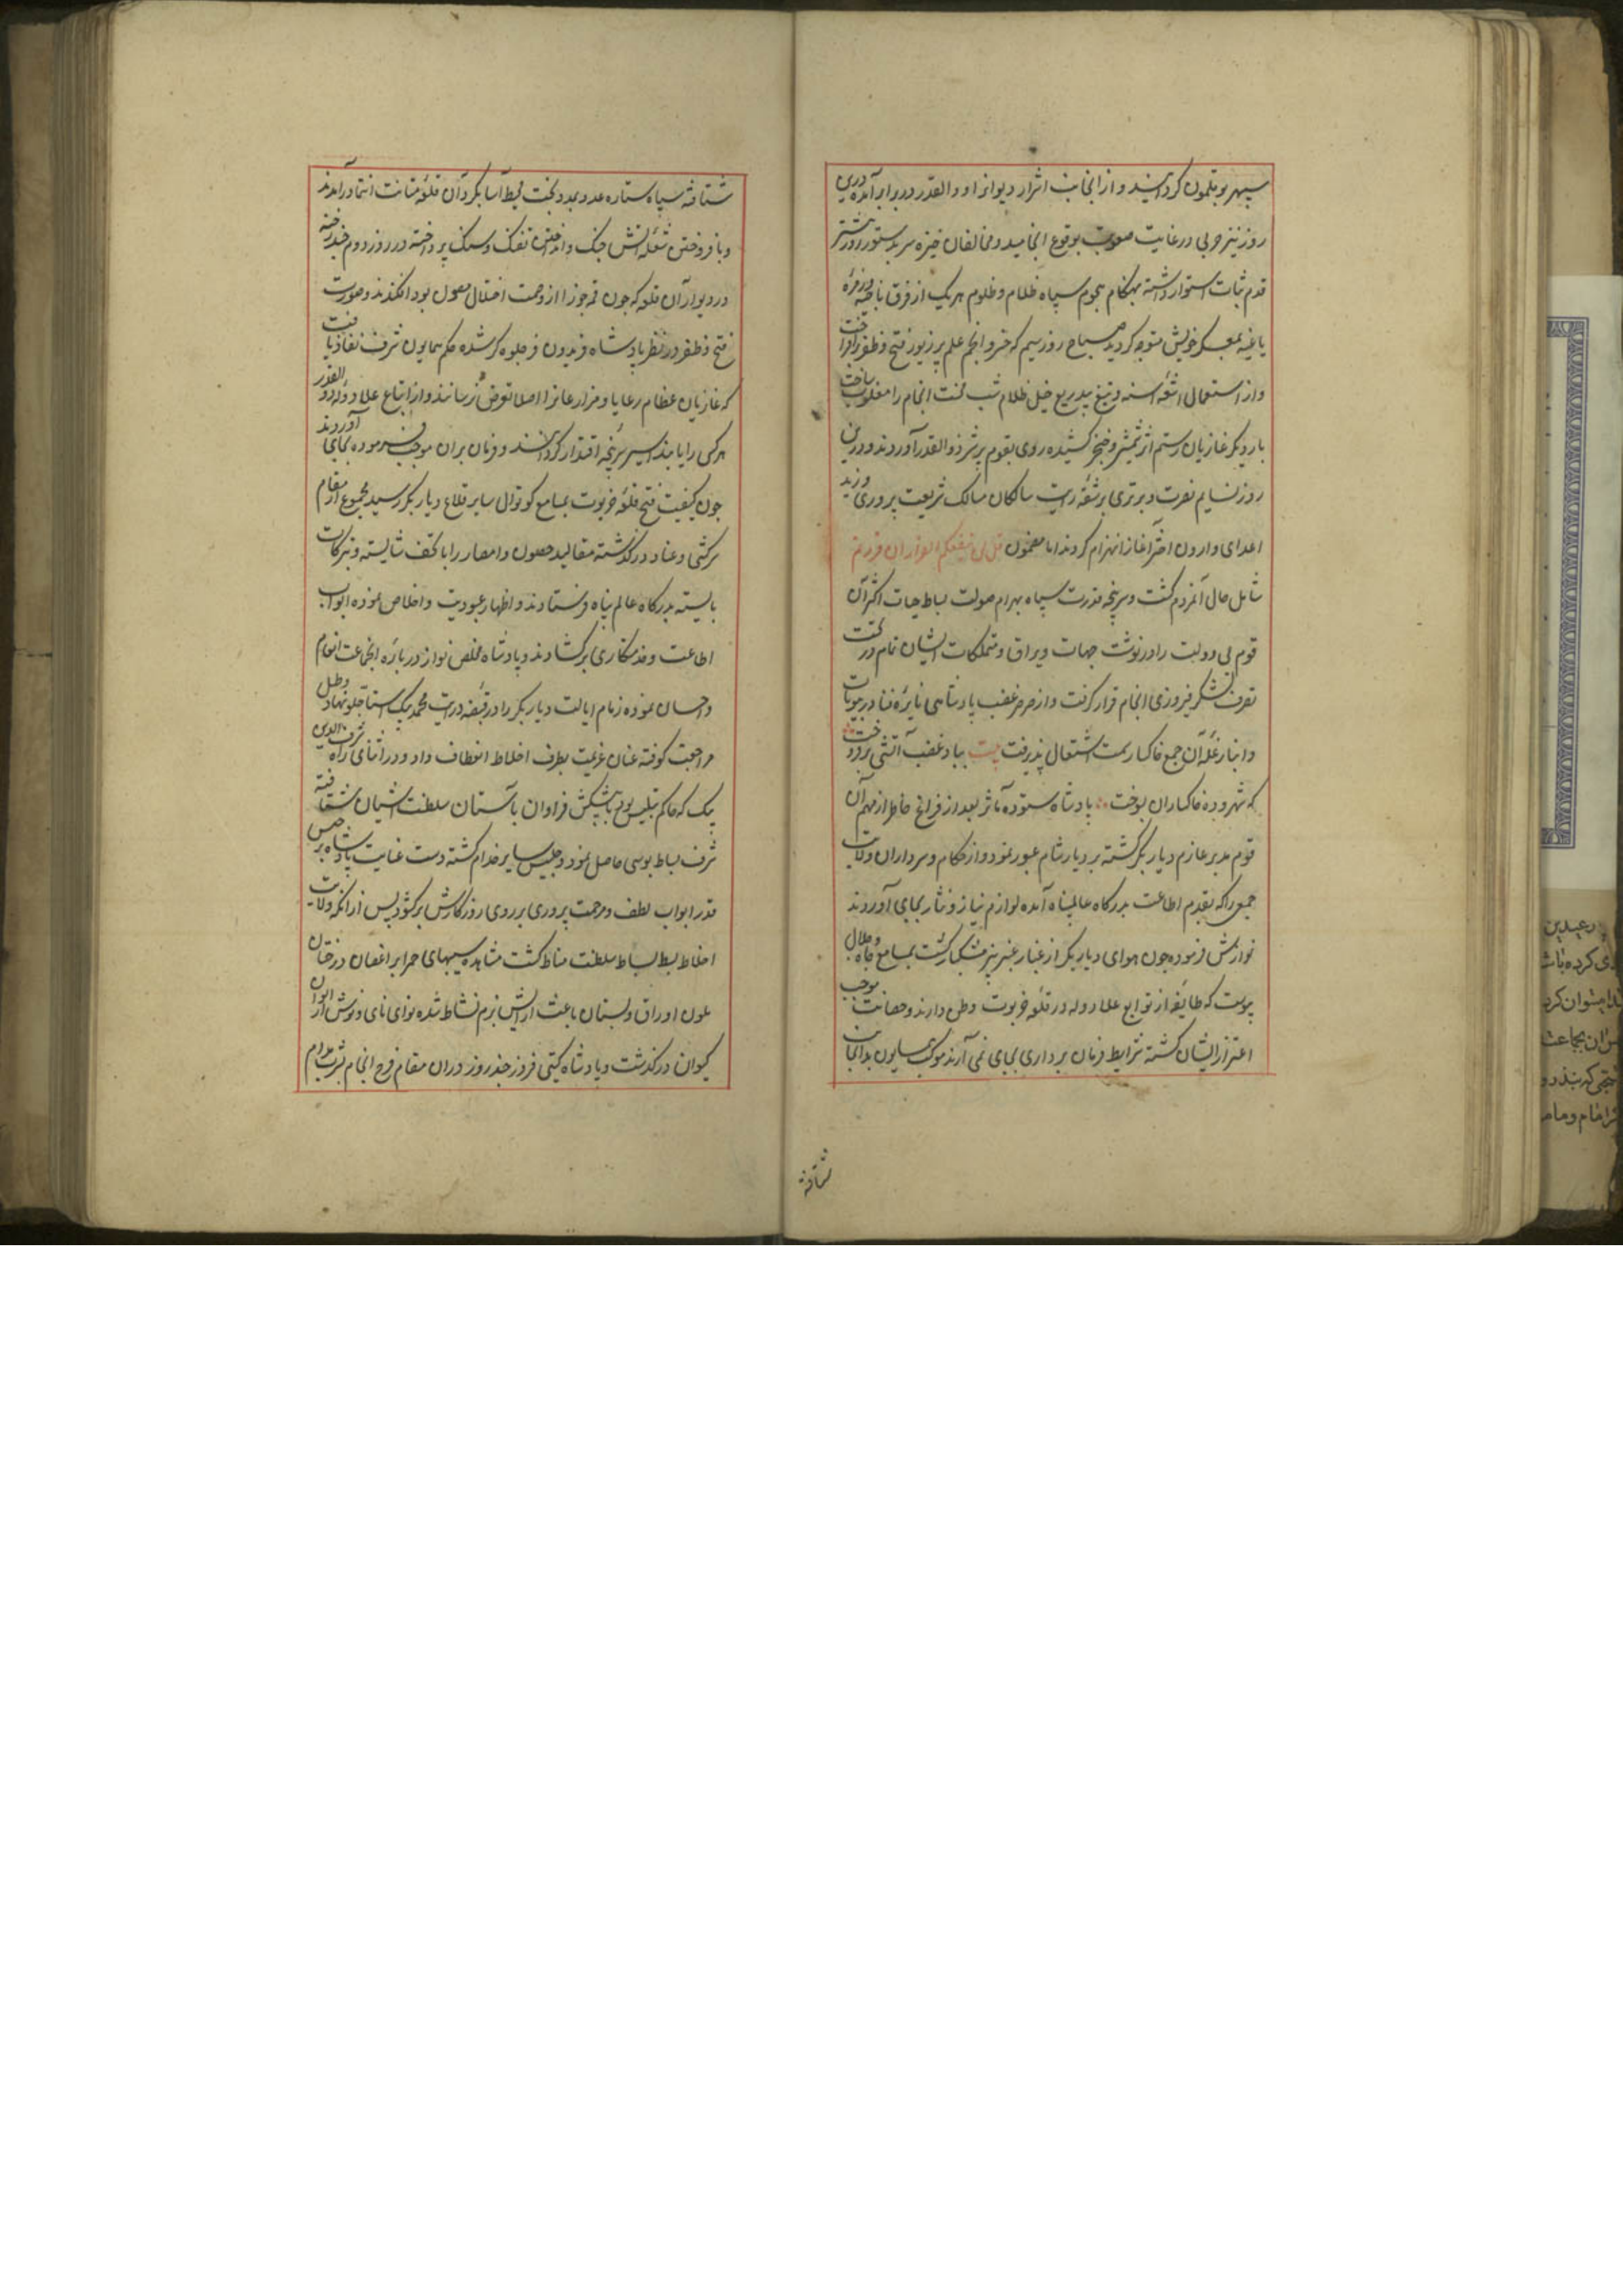 سپهر بوقلمون گردانیدند و از انجانب اشرار دیوانژاد ذوالقدر در برابر آمده درین
روز نیز حربی در غایت صعوبت بوقوع انجامید و مخالفان خیره سر بدستور روز پیشتر
قدم ثبات استوار داشته بهنگام هجوم سپاه ظلام و ظلوم هر یک از فرق ناجیه و زمره
یاغیه بمعسکر خویش متوجه گردید صباح روز سیم که خسرو انجم علم پر زیور فتح و ظفر برافراخت
و از استعمال اشعه اسنه و تیغ بیدریغ خیل ظلام شب نکبت انجام را مغلوب ساخت
بار دیگر غازیان رستم اثر شمشیر و خنجر کشیده روی بقوم پر شر ذوالقدر آوردند و درین
روز نسایم نصرت و برتری بر شقه رایت سالکان مسالک شریعت پروری وزید
اعدای وارون اختر آغاز انهزام کردند اما مضمون قل لن ینفعکم الفرار ان فررتم
شامل حال آنمردم گشت و سرپنجه قدرت سپاه بهرام صولت بساط حیات اکثر آن
قوم بی دولت را درنوشت جهات و یراق و متملکات ایشان تمام در تحت
تصرف لشکر فیروزی انجام قرار گرفت و از صرصر غضب پادشاهی نایره فنا در بیوتات
و انبار غله آن جمع خاکسار سمت اشتعال پذیرفت بیت بباد غضب آتشی برفروخت
که شهر و ده خاکساران بسوخت پادشاه ستوده مآثر بعد از فراغ خاطر از مهم آن
قوم مدبر عازم دیار بکر گشته بر دیار شام عبور نمود و از حکام و سرداران ولایات
جمعی را که بقدم اطاعت بدرگاه عالمپناه آمده لوازم نیاز و نثار بجای آوردند
نوازش فرمود چون هوای دیار بکر از غبار عنبر بیز مشکبار گشت بمسامع جاه و جلال
پیوست که طایفه از توابع علاء دوله در قلعه خرپوت وطن دارند و حصانت موجب
اعتزار ایشان گشته شرایط فرمان برداری بجای نمی آرند موکب همایون بدانجانب
شتافته
شتافته سپاه ستاره عدد بمدد بخت محیط آسا بگرد آن قلعه متانت انتما درآمدند
و بافروختن شعله آتش جنگ و انداختن تفنگ و سنگ پرداخته در روز دوم چند رخنه
در دیوار آن قلعه که چون قبه جوزا از وصمت اختلال مصون بود افکندند و صورت
فتح و ظفر در نظر پادشاه فریدون فر جلوه گر شده حکم همایون شرف نفاذ یافت
که غازیان عظام رعایا و مزارعانرا اصلا تعرض نرسانند و از اتباع علاء دوله ذوالقدر
هر کس را یابند اسیر سرپنجه اقتدار گردانند و فرمان بران موجب فرموده بجای آوردند
چون کیفیت فتح قلعه خرپوت بمسامع کوتوالی سایر قلاع دیار بکر رسید مجموع از مقام
سرکشی و عناد درگذشته مقالید حصون و امصار را با تحف شایسته و تبرکات
بایسته بدرگاه عالم پناه فرستادند و اظهار عبودیت و اخلاص نموده ابواب
اطاعت و خدمتکاری برگشادند و پادشاه مخلص نواز درباره انجماعت انعام
و احسان نموده زمام ایالت دیار بکر را در قبضه درایت محمد بیک استاجلو نهاد و طبل
مراجعت کوفته عنان عزیمت بطرف اخلاط انعطاف داد و در اثنای راه شرف الدین
بیک که حاکم تبلیس بود با پیشکش فراوان بآستان سلطنت آشیان شتافته
شرف بساط بوسی حاصل نمود و جلیس سایر خدام گشته دست عنایت پادشاه برجیس
قدر ابواب لطف و مرحمت پروری بر روی روزگارش برگشود پس از آنکه ولایت
اخلاط بسط بساط سلطنت مناط گشت مشاهده سیبهای حمرا بر اغصان درختان
بلون اوراق و بستان باعث آرایش بزم نشاط شده نوای نای و نوش از ایوان
کیوان درگذشت و پادشاه گیتی فروز چند روز در ان مقام فرح انجام بشرب مدام